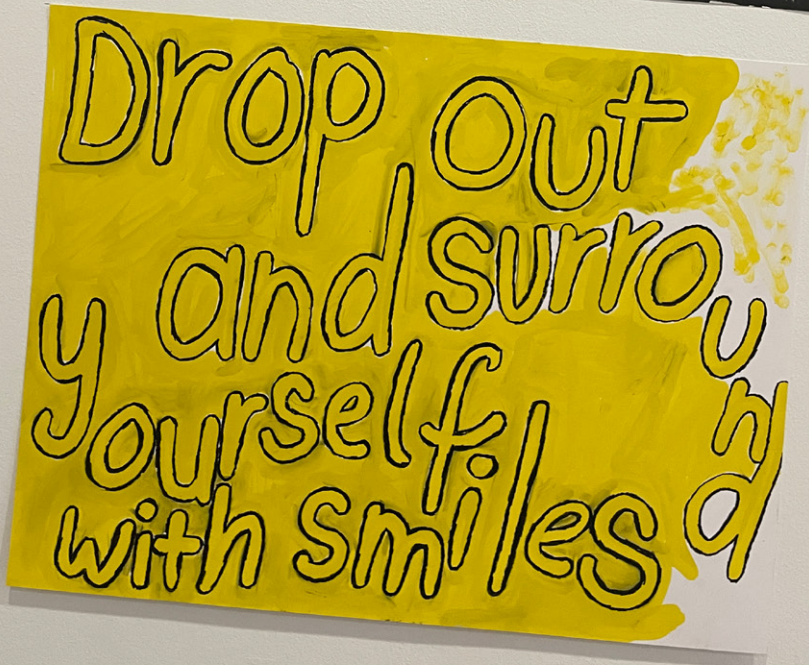 Drop out
and surround
yourself
with smiles